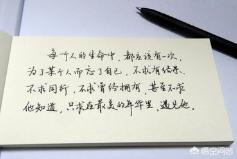 每个人的生命中，都应该有一次，
为了某个人而忘了自己，不求有结果，
不求同行，不求曾经拥有，甚至不求
他知道，只求在最美的年华里，遇见他。
悟空问答